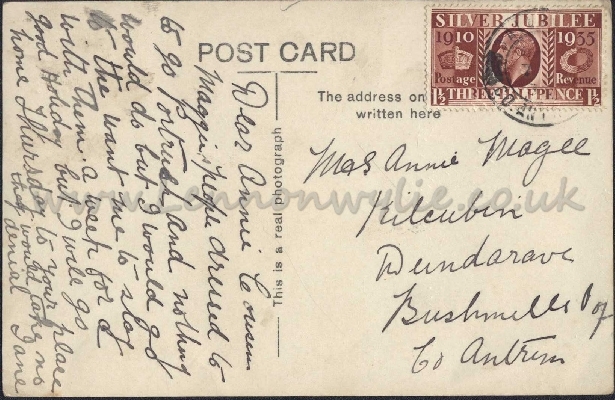 POST CARD
SILVER JUBILEE
1910 1935
Postage Revenue
1½ THREE HALFPENCE 1½
The address on
written here
This is a real photograph
Dear Annie Cousin
Maggie people dressed to
to go Portrush and nothing
would do but I would go
to the want me to stay
with them a week for a
good Holiday but I will go
home Thursday to your place
they would take no
denial Jane
Mrs Annie Magee
Dundarave
Bushmills
Co Antrim
www.lennonwylie.co.uk